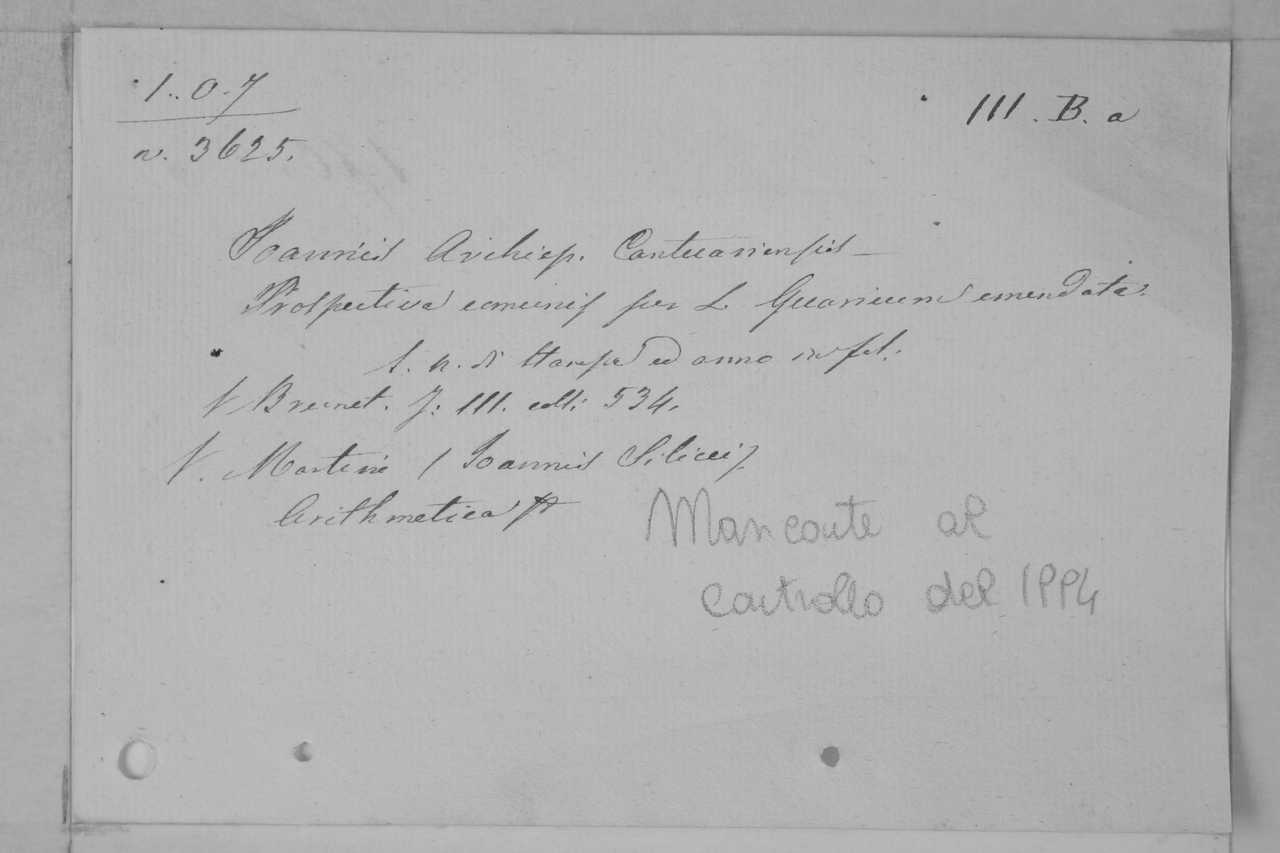 1.0.7
n. 3625.
III. B. a
Joannis Archiep. Cantuariensis _
Prospectiva comunis per L Guaricum emendata.
s. n. di Stampa ed anno in fol.
V Brunet. T. III. coll. 534.
V. Martini / Joannis Silicei/
Arithmetica
Mancante al
controllo del 1994